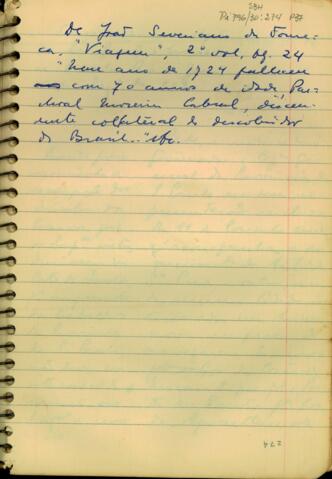 SBH
Pi 796/30:274 P37
De João Severiano da Fonse-
ca, "Viagem", 2º vol. pg. 24
"neste ano de 1724 falleceu
com 70 annos de idade Pas-
choal Moreira Cabral, descen-
dente collateral do descobridor
do Brasil." etc.
274